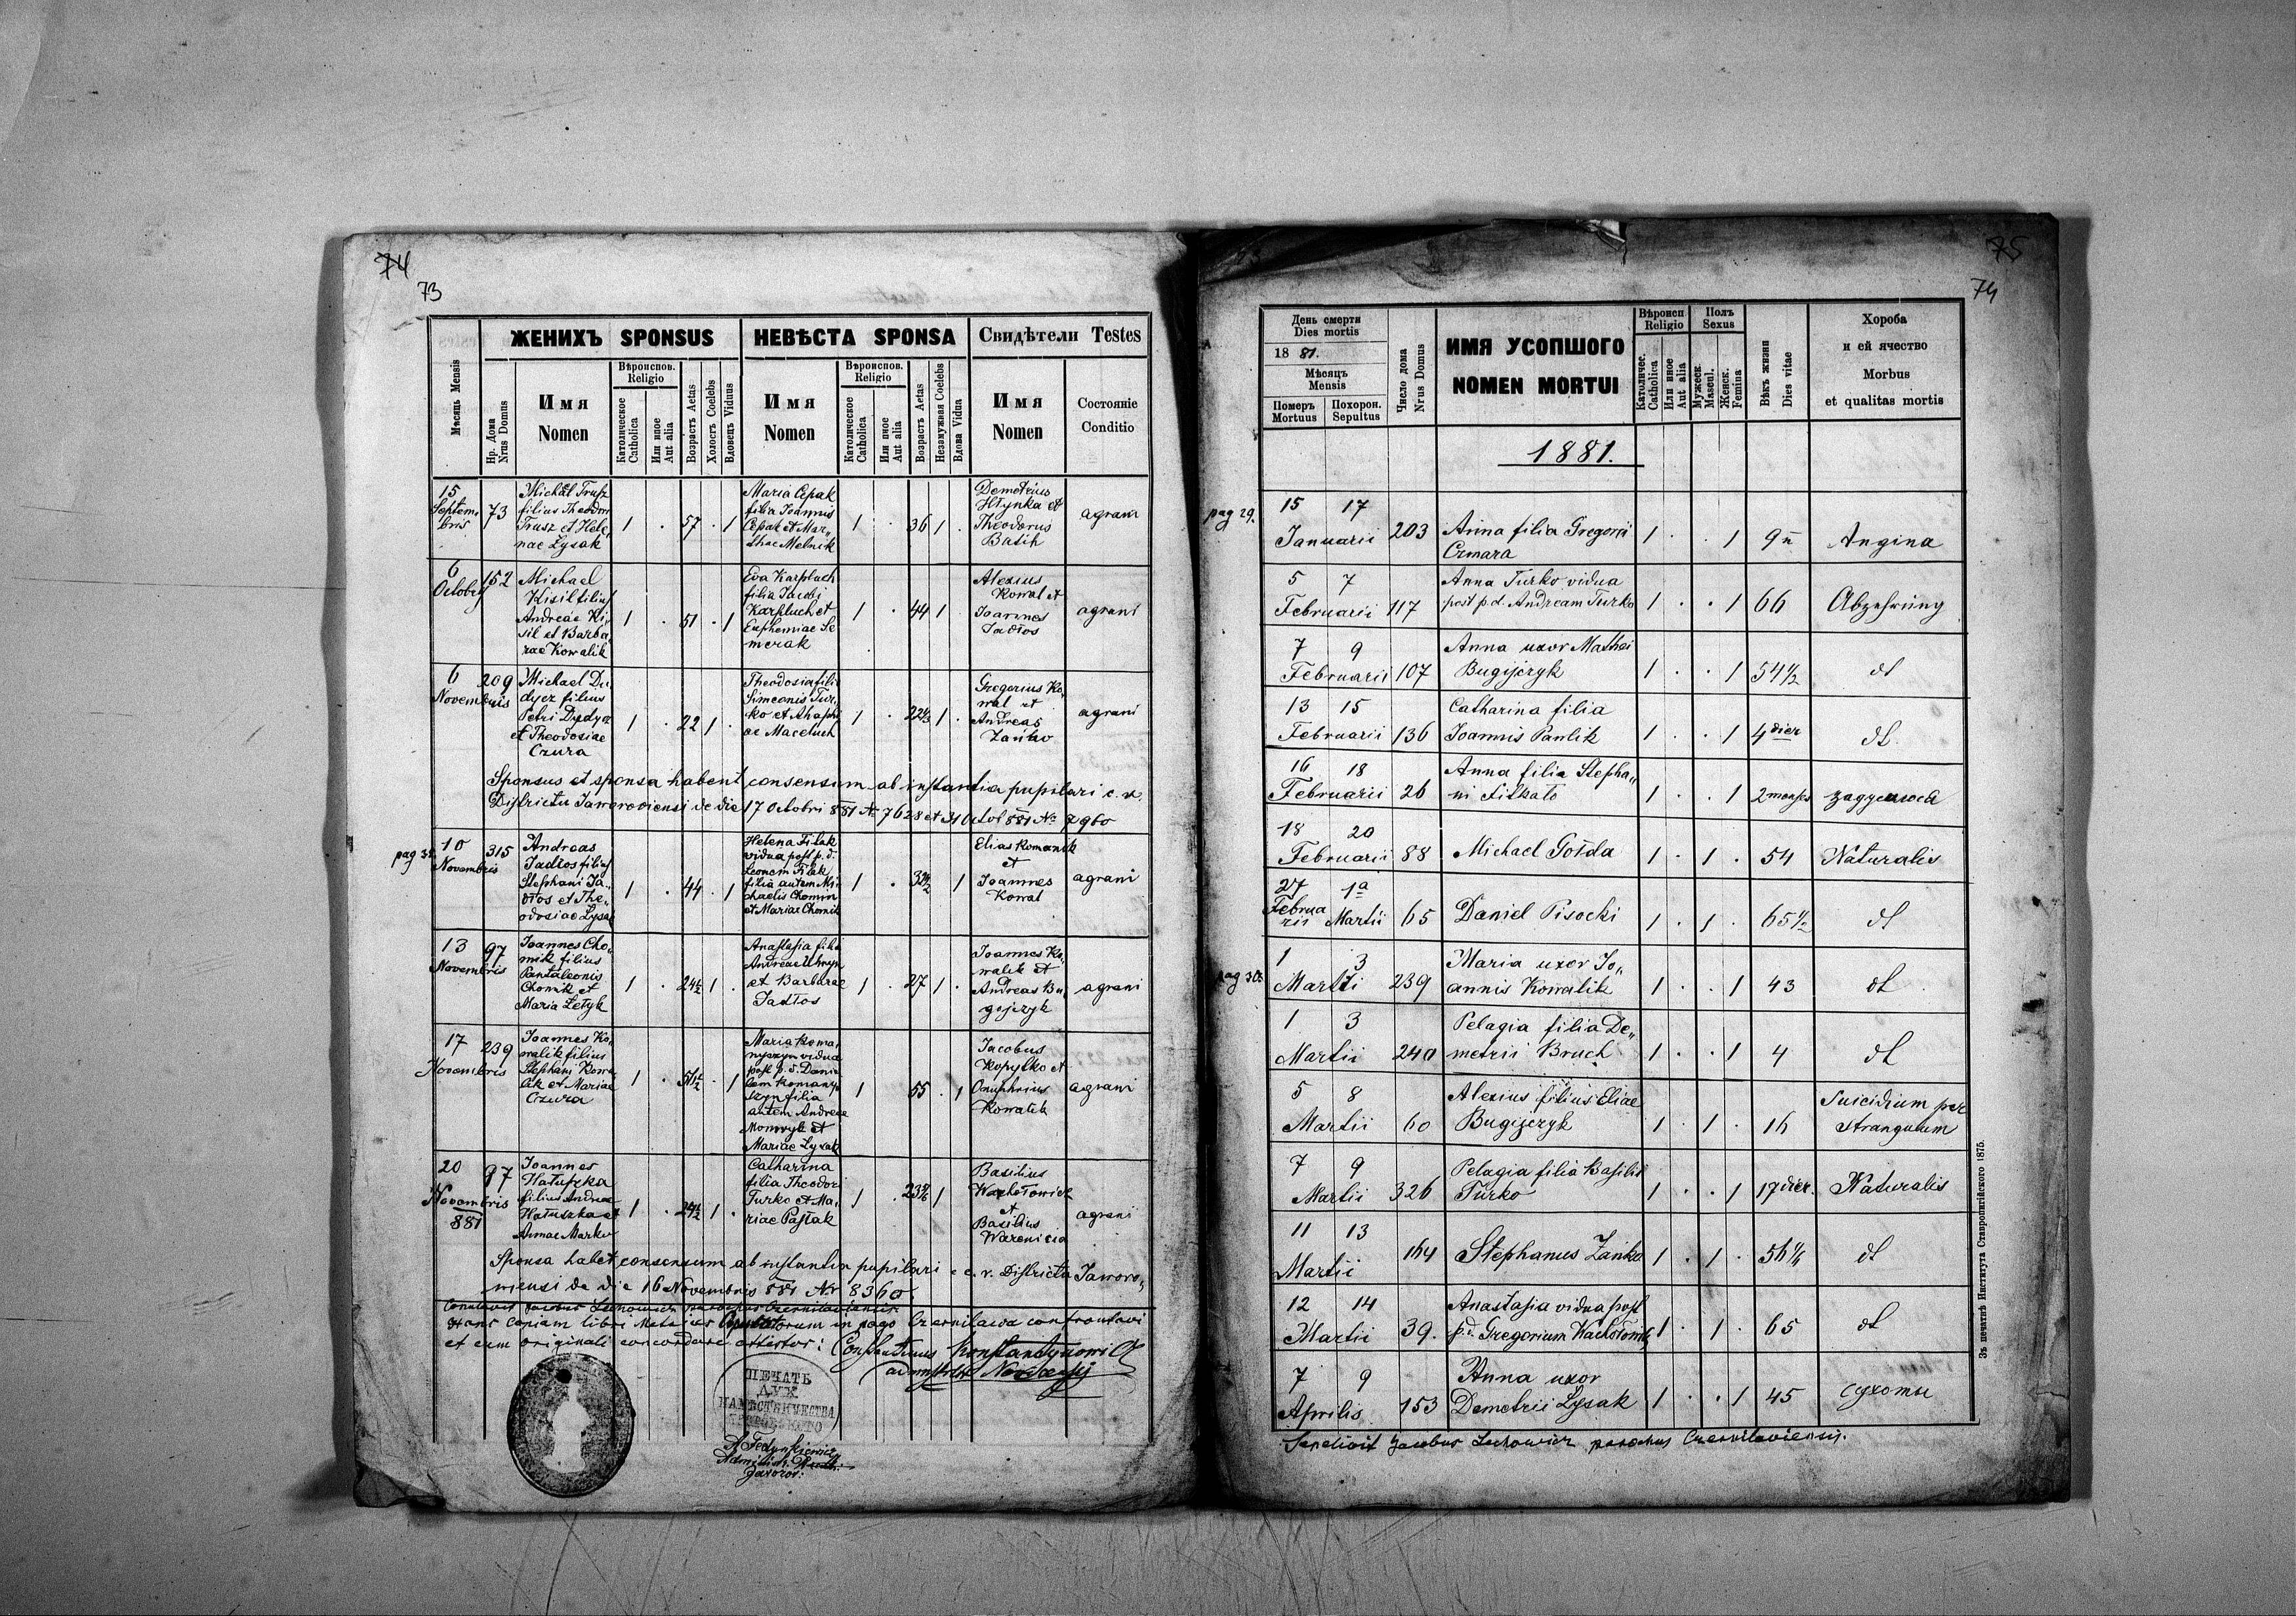 74
73
ЖЕНИХЪ SPONSUS
НЕВѢСТА SPONSA
Свидѣтели Testes
Мѣсяцъ Mensis
Нр. Дома Nrus Domus
Имя
Nomen
Вѣроиспов.
Religio
Католическое
Catholica
Или иное
Aut alia
Возрастъ Aetas
Холостъ Coelebs
Вдовецъ Viduus
Имя
Nomen
Вѣроиспов.
Religio
Католическое
Catholica
Или иное
Aut alia
Возрастъ Aetas
Незамужная Coelebs
Вдова Vidua
Имя
Nomen
Состояніе
Conditio
15
Septem
bris
73
Michael Trusz
filius Theodori
Trusz et Hele,,
nae Lysak
1 . 57 . 1
Maria Cepak
filia Joannis
Cepak et Mar,,
thae Melnik
1 . 36 1 .
Demetrius
Hłynka et
Theodorus
Batih
agrani
6
Octobris
152
Michael
Kisil filius
Andreae Ki,,
sil et Barba
rae Kowalik
1 . 51 . 1
Eva Karpluch
filia Jacobi
Karpluch et
Euphemiae Se
merak
1 . 44 1 .
Alexius
Kowal et
Joannes
Jadłos
agrani
6
Novembris
209
Michael Du
dycz filius
Petri Dydycz
et Theodosiae
Czura
1 . 22 1 .
Theodosia filia
Simeonis Tur,,
ko et Ahaphi
ae Maceluch
1 . 22 1 .
Gregorius Ko,,
wal et
Andreas
Zańko
agrani
Sponsus et sponsa habent consensum ab instantia pupilari c. r.
Districtu Jaworoviensi de die 17 Octobri 881 Nr 7628 et 31 Octob 881 Nr 7960
10
Novembris
315
Andreas
Jadłos filius
Stephani Ja,,
dłos et The,,
odosiae Lysak
1 . 44 . 1
Helena Filak
vidua post p. d.
Leonem Filak
filia autem Mi
chaelis Chomin
et Mariae Chomik
1 . 1
Elias Romanik
et
Joannes
Kowal
agrani
13
Novembris
97
Joannes Cho,,
mik filius
Pantaleonis
Chomik et
Maria Łetyk
1 . 24½ 1 .
Anastasia filia
Andreae Uhryn
et Barbarae
Jadłos
1 . 27 1 .
Joannes Ko,,
walik et
Andreas Bu,,
gejczyk
agrani
17
Novembris
239
Joannes Ko,,
walik filius
Stephani Kowa
lik et Mariae
Czura
1 . 51½ . 1
Maria Roma,,
nyszyn vidua
post p. d. Dani
elem Romany,,
szyn filia
autem Andreae
et
Mariae Lysak
1 . 55 . 1
Jacobus
Kopytko et
Onuphrius
Kowalik
agrani
20
Novembris
881
97
Joannes
Hałuszka
filius Andreae
Hałuszka et
Annae Marko
1 . 24½ 1 .
Catharina
filia Theodori
Turko et Ma,,
riae Pastak
1 . 1
Basilius
Wachołowicz
et
Basilius
Warenicia
agrani
Sponsa habet consensum ab instantia pupilari c. r. Districta Jaworo,,
wiensi de die 16 Novembris 881 Nr 8360
Copulavit Jacobus Lechowicz parochus Czernilaviensis
Hanc Copiam libri Metrices Copulatorum in pago Czernilawa confrontavi
et cum originali concordare attestor: Constantinus Konstantynowicz
ПЕЧАТЬ
ДУХ.
НАМѢСТНИЧЕСТВА
A Fedynkiewicz
75
74
День смерти
Dies mortis
1881.
Мѣсяцъ
Mensis
Померъ
Mortuus
Похорон.
Sepultus
Число дома
Nrus Domus
ИМЯ УСОПШОГО
NOMEN MORTUI
Вѣроисп
Religio
Католичес.
Catholica
Или иное
Aut alia
Полъ
Sexus
Мужеск.
Mascul.
Женск.
Femina
Вѣкъ жизни
Dies vitae
Хороба
и ей ячество
Morbus
et qualitas mortis
1881.
pag 29.
15 17
Januarii 203 Anna filia Gregorii
Czmara
1 . . 1 9 Angina
5 7
Februarii 117 Anna Turko vidua
post p.d. Andream Turko 1 . . 1 66 Abzehrung
7 9
Februarii 107 Anna uxor Mathei
Bugijczyk 1 . . 1 54½ dt
13 15
Februarii 136 Catharina filia
Joannis Pawlik 1 . . 1 4 dier dt
16 18
Februarii 26 Anna filia Stepha,,
ni Filkało 1 . . 1 2 menses
18 20
Februarii 88 Michael Gołda 1 . 1 . 54 Naturalis
27 1a
Februa
rii Martii 65 Daniel Pisocki 1 . 1 . 65½ dt
pag 30.
1 3
Martii 239 Maria uxor Jo,,
annis Kowalik 1 . . 1 43 dt
1 3
Martii 240 Pelagia filia De,,
metrii Bruch 1 . . 1 4 dt
5 8
Martii 60 Alexius filius Eliae
Bugijczyk 1 . 1 . 16 Suicidium per
strangulum
7 9
Martii 326 Pelagia filia Basilii
Turko 1 . . 1 17 dier. Naturalis
11 13
Martii 164 Stephanus Zańko 1 . 1 . 56 dt
12 14
Martii 39. Anastasia vidua post
p.d. Gregorium Wachołowicz 1 . 1 . 65 dt
7 9
Aprilis 153 Anna uxor
Demetrii Lysak 1 . . 1 45 сухоты
Sepelivit Jacobus Lechowicz parochus Czernilaviensis.
Зъ печатнѣ Института Ставропигійского 1875.